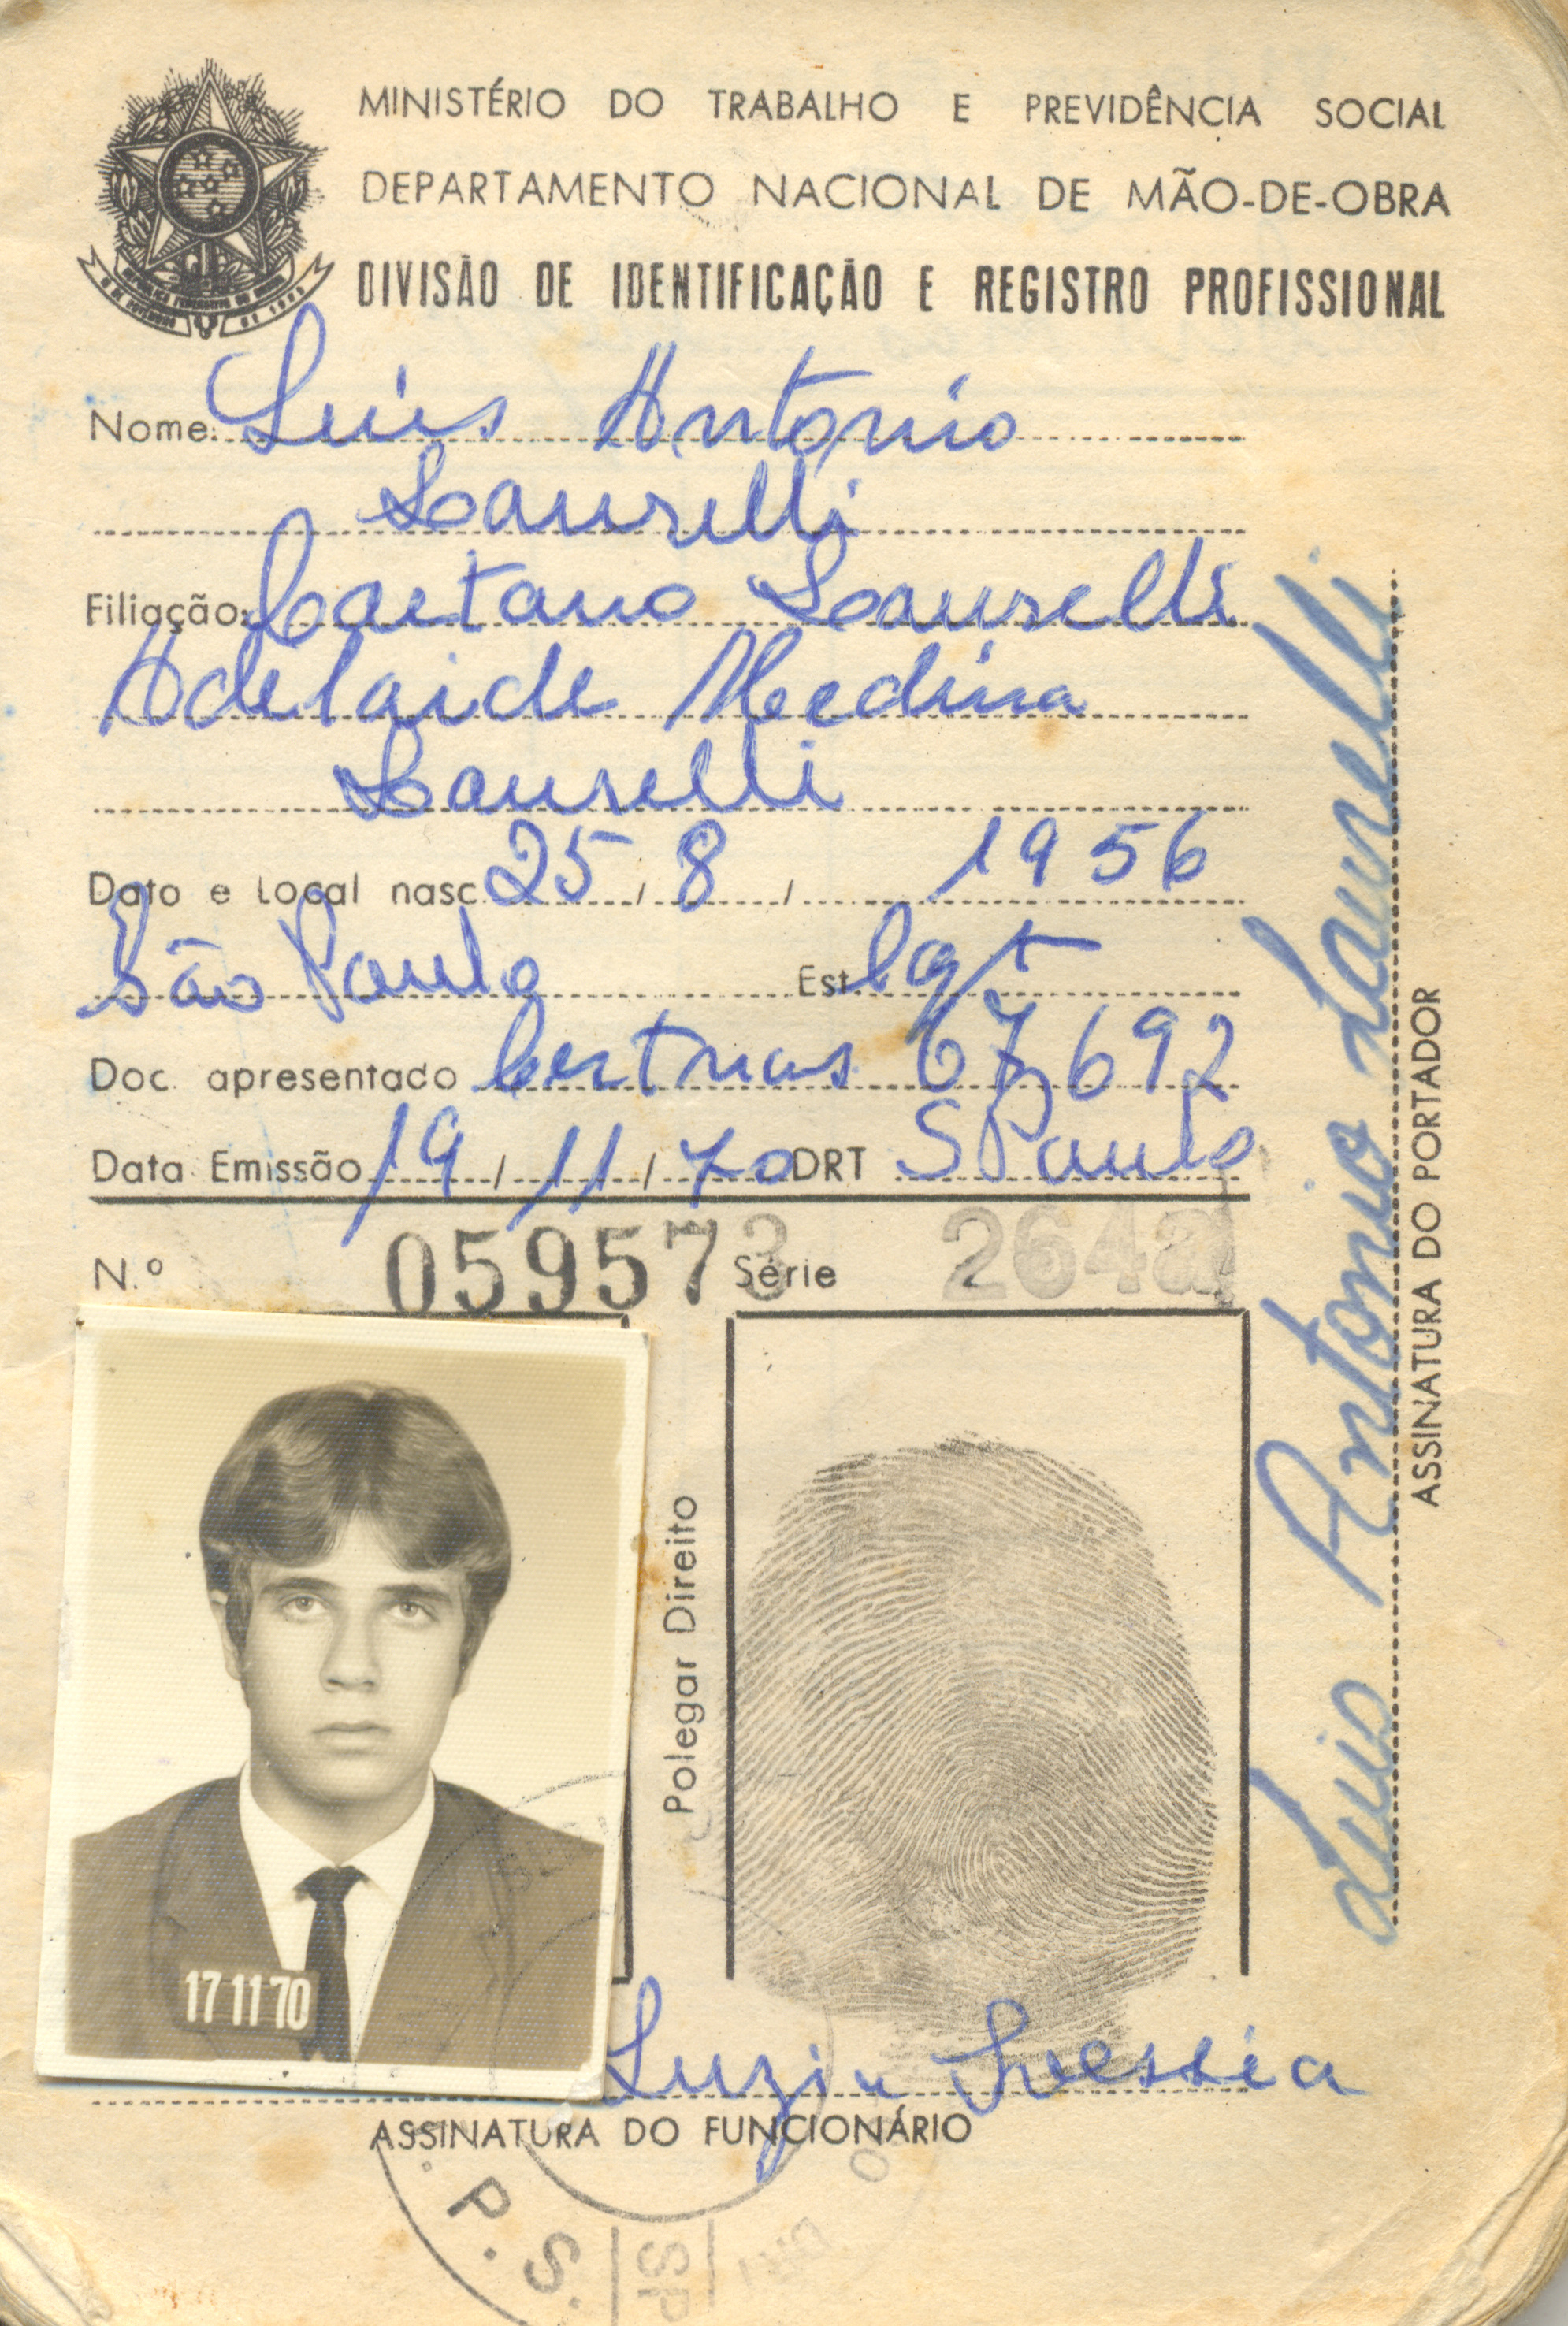 MINISTÉRIO DO TRABALHO E PREVIDÊNCIA SOCIAL
DEPARTAMENTO NACIONAL DE MÃO-DE-OBRA
DIVISÃO DE IDENTIFICAÇÃO E REGISTRO PROFISSIONAL
Nome: Luis Antonio
Laurelli
Filiação: Caetano Laurelli
Adelaide Medina
Laurelli
Data e Local nasc. 25 / 8 / 1956
São Paulo Est.
Doc. apresentado 67692
Data Emissão 19 / 11 / 70 DRT S Paulo
N.º 059573 Série 264a
Polegar Direito
17 11 70
Luzia
ASSINATURA DO FUNCIONÁRIO
P. S.
SP
Luis Antonio Laurelli
ASSINATURA DO PORTADOR